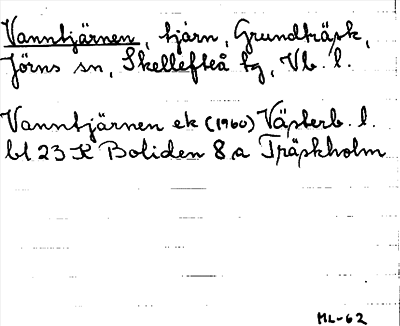 Vanntjärnen, tjärn, Grundträsk,
Jörns sn, Skellefteå tg, Vb. l.
Vanntjärnen ek (1960) Västerb. l.
bl 23 K Boliden 8 a Träskholm
ML-62